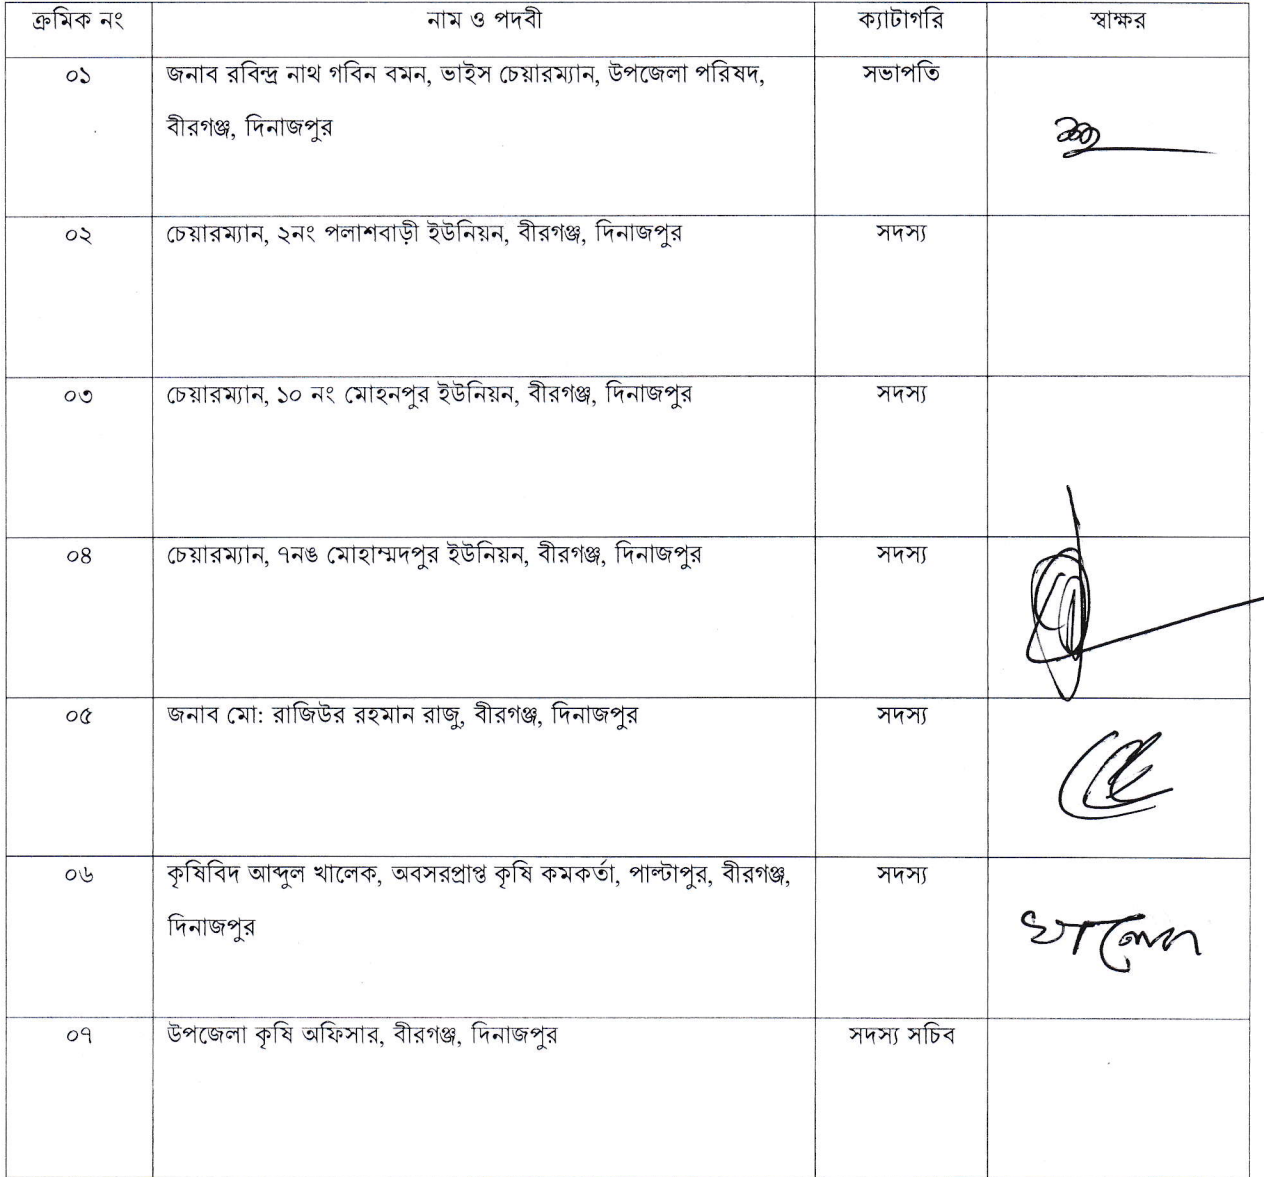 ক্রমিক নং নাম ও পদবী ক্যাটাগরি স্বাক্ষর
০১ জনাব রবিন্দ্র নাথ গবিন বমন, ভাইস চেয়ারম্যান, উপজেলা পরিষদ, সভাপতি
বীরগঞ্জ, দিনাজপুর
০২ চেয়ারম্যান, ২নং পলাশবাড়ী ইউনিয়ন, বীরগঞ্জ, দিনাজপুর সদস্য
০৩ চেয়ারম্যান, ১০ নং মোহনপুর ইউনিয়ন, বীরগঞ্জ, দিনাজপুর সদস্য
০৪ চেয়ারম্যান, ৭নঙ মোহাম্মদপুর ইউনিয়ন, বীরগঞ্জ, দিনাজপুর সদস্য
০৫ জনাব মো: রাজিউর রহমান রাজু, বীরগঞ্জ, দিনাজপুর সদস্য
০৬ কৃষিবিদ আব্দুল খালেক, অবসরপ্রাপ্ত কৃষি কমকর্তা, পাল্টাপুর, বীরগঞ্জ, সদস্য
দিনাজপুর খালেক
০৭ উপজেলা কৃষি অফিসার, বীরগঞ্জ, দিনাজপুর সদস্য সচিব